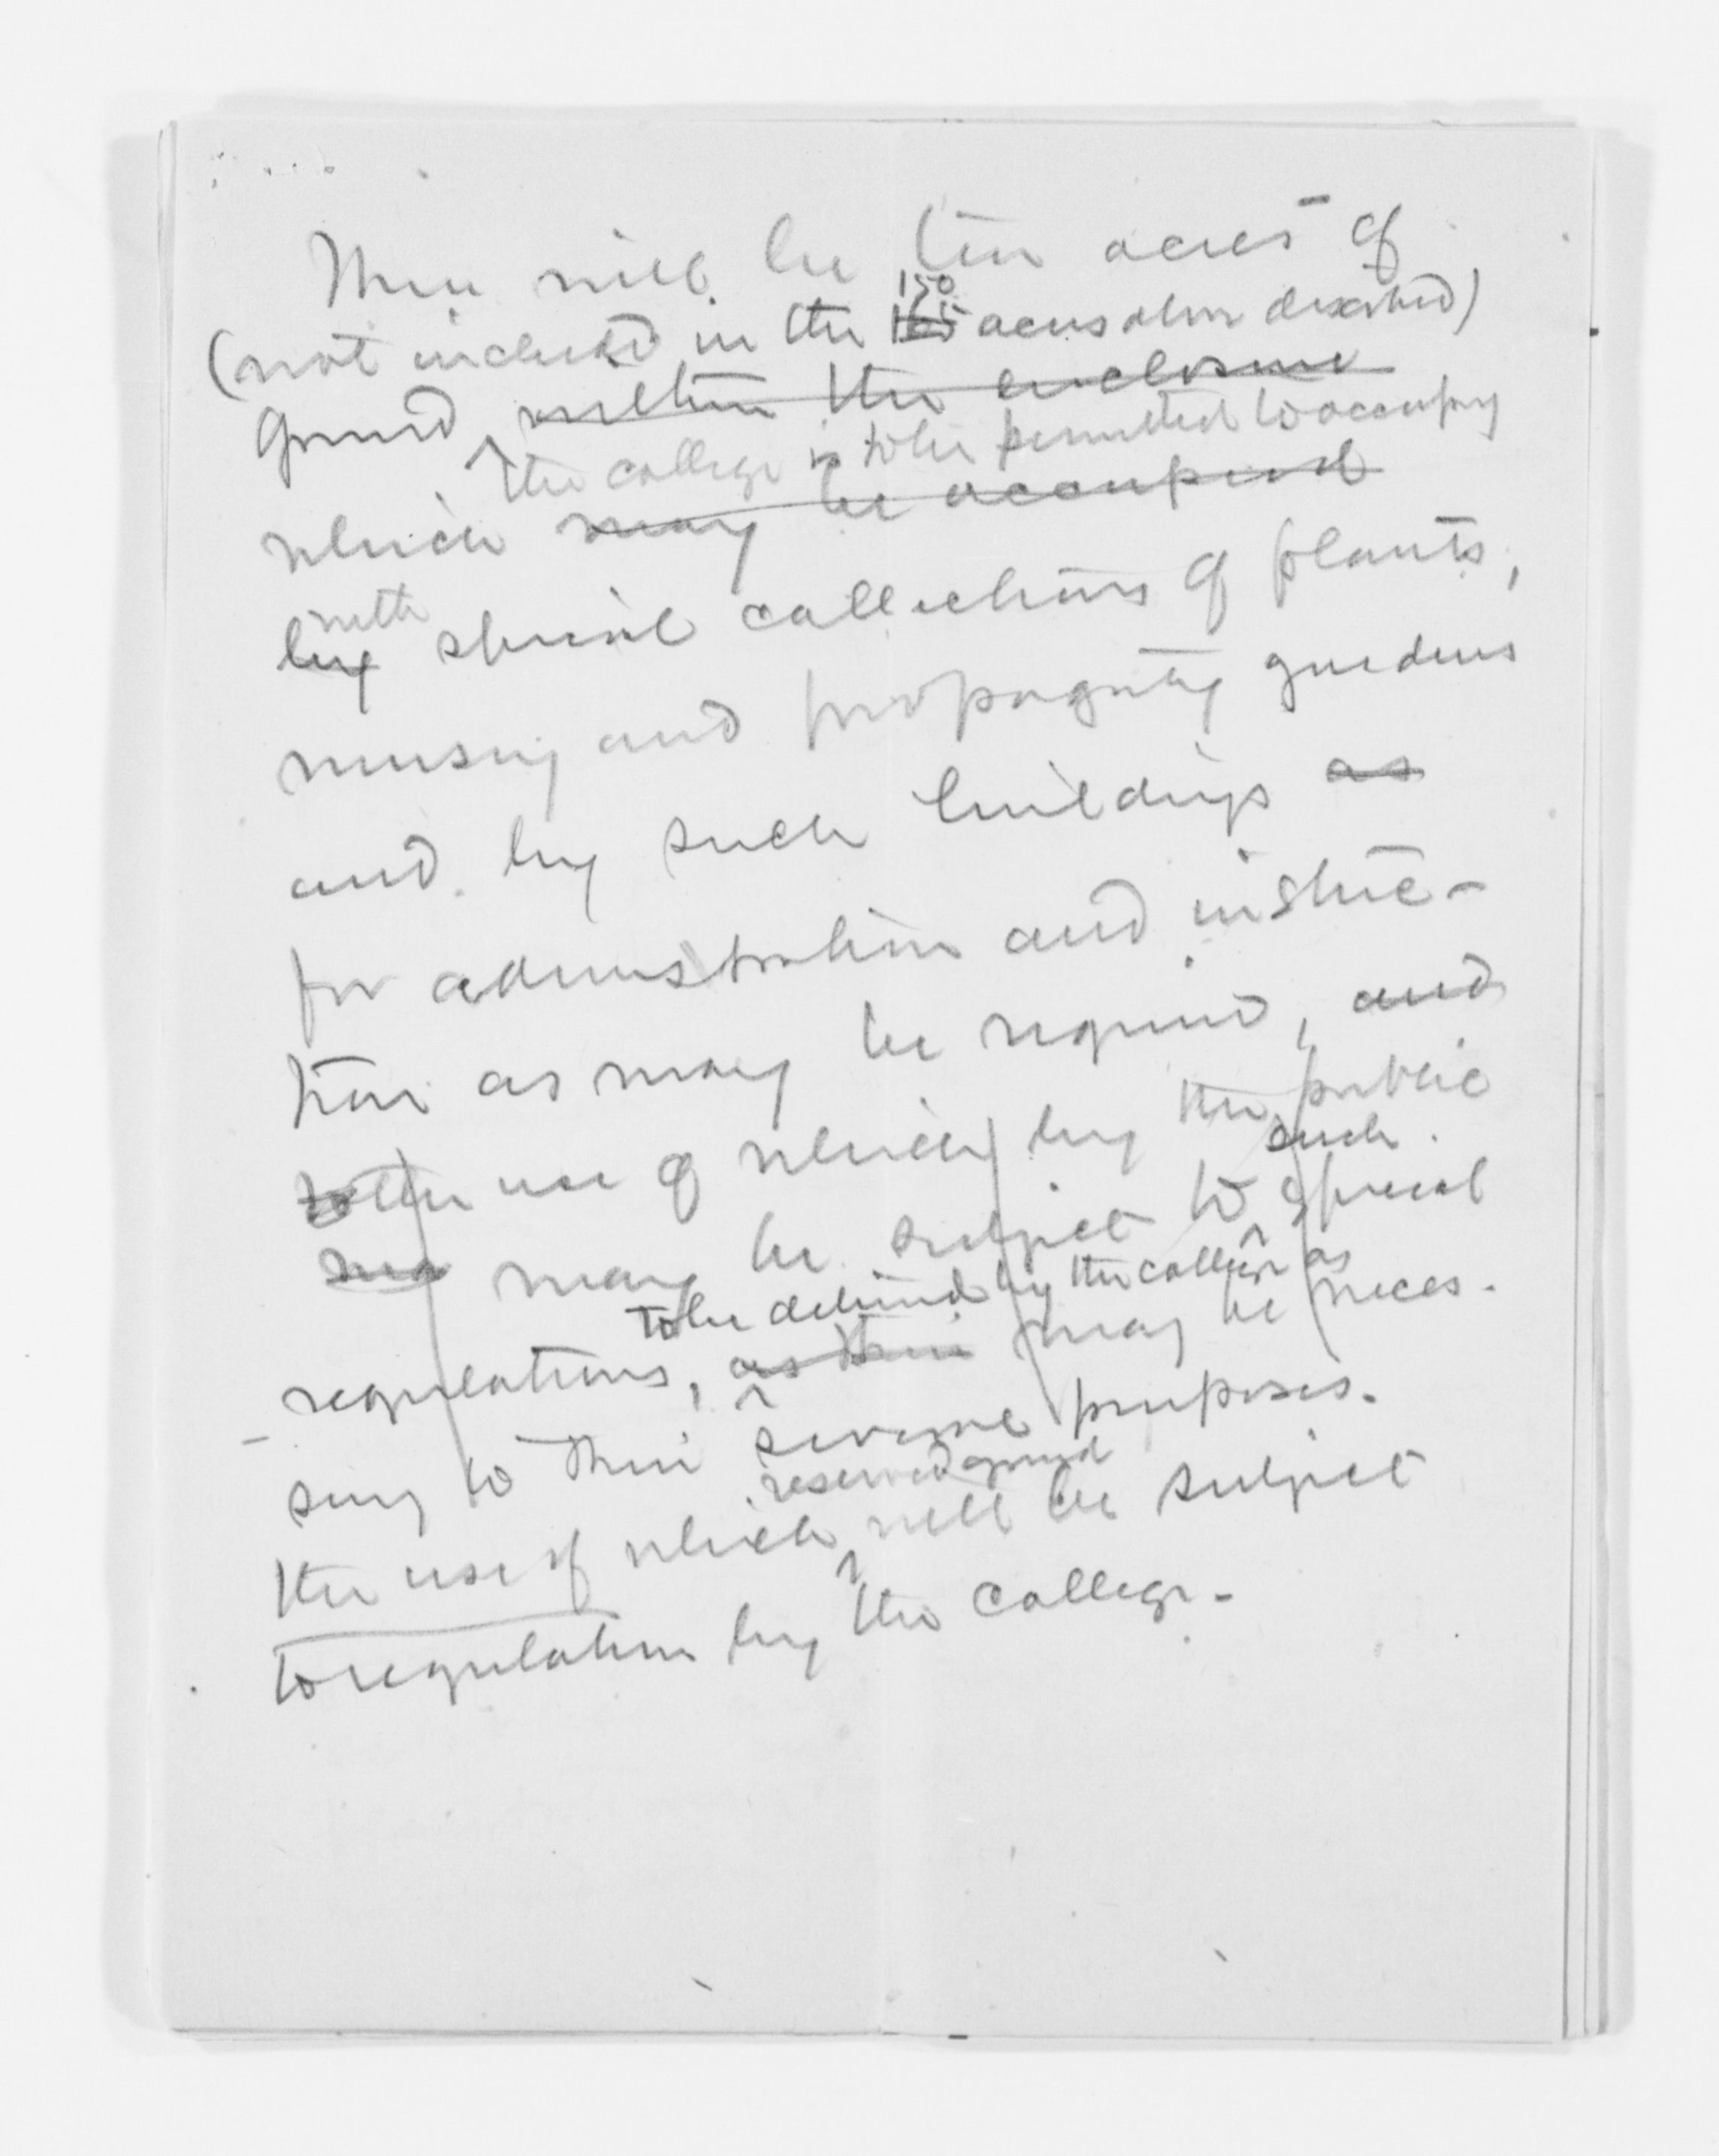 There will be ten acres of
150
(not included in the 165 acres above described)
ground within the enclosure
the college is to be permitted to occupy
which may be occupied
with
by special collections of plants,
nursery and propagating gardens
and by such buildings as
for administration and instruc-
tion as may be required, and
to the use of which by the public
such
may be subject to special
to be defined by the college as
regulations, as their may be neces-
sary to their several purposes.
reserved ground
the use of which will be subject
to regulation by the college.